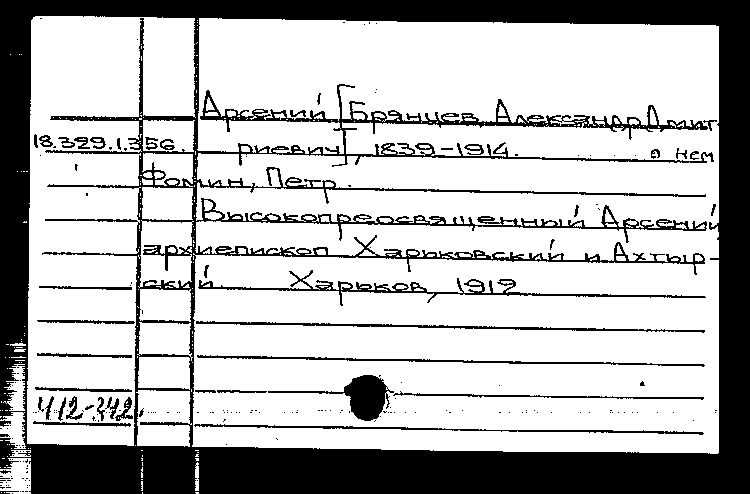 Арсений [Брянцев, Александр Дмит-
18.329.1.356. риевич], 1839-1914. о нем
Фомин, Петр.
Высокопреосвященный Арсений,
архиепископ Харьковский и Ахтыр-
ский Харьков, 1912
412-342.